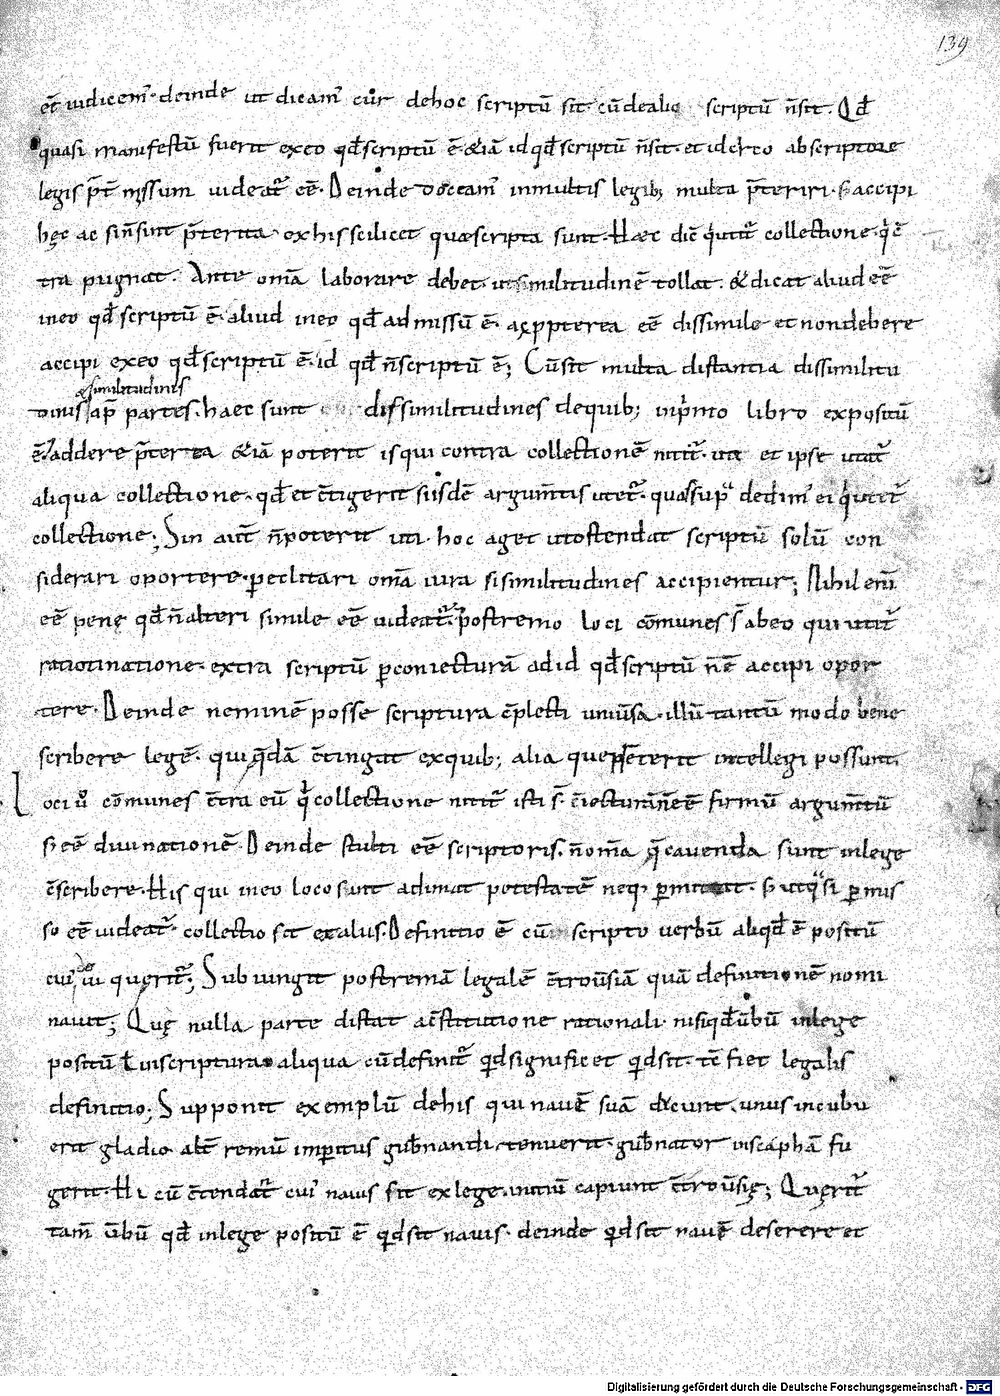 139
et̄ iudicem̄· deinde ut dicam̄ cur dehoc scriptū sit cūdealio scriptū n̄sit. Qđ
quasi manifestū fuerit exeo qđscriptū ē &iā idqđscriptū n̄sit· et idcirco abscriptore
legis p̄t̄missum uideat̄ eē. Deinde doceam̄ inmultis legib; multa p̄teriri· s; accipi
hęc ac sin̄sint p̄terita· exhisscilicet quæscripta sunt. Hæc dic̄ q̇utit̄ collectione· q̇ c̄
tra pugnat. Ante om̄a laborare debet· utsimilitudinē tollat. & dicat aliud eē
ineo qđscriptū ē· aliud ineo qđ admissū ē· acppterea eē dissimile et nondebere
accipi exeo qđscriptū ē· id qđ n̄scriptū ē; Cūsit multa distantia dissimilitu
&similitudinis
dinis ap̄ partes. haec sunt dissimilitudines dequib; inp̄mo libro expositū
ē. addere p̄terea &iā poterit isqui contra collectionē nitit̄· uti et ipse utat̄
aliqua collectione· qđ et c̄tigerit suisdē argum̄tis utet̄· quassup̄ dedim̄ ei q̇utet̄
collectione; Sin aut̄ n̄poterit uti· hoc aget utostendat scriptū solū con
siderari oportere· periclitari om̄a iura sisimilitudines accipientur; Nihil eni
eē penę qđ n̄alteri simile eē uideat̄· postremo loci cōmunes s̄ abeo qui utit̄
ratiotinatione· extra scriptū pconiecturā ad id qđscriptū n̄ē accipi opor
tere. Deinde neminē posse scriptura c̄plecti uniūsa· illū tantū modo bene
scribere legē· qui q̄dā c̄tingat exquib; alia que intellegi possunt.
Loci ū cōmunes c̄tra eū q̇ collectione nitit̄ isti s̄· c̄iecturān̄eē firmū argum̄tū
s; eē diuinationē. Deinde stulti eē scriptoris· n̄om̄a q̄cauenda sunt inlege
c̄scribere. His qui ineo loco sunt adimat potestatē neq; pmittat. s; utq̄si pmis
so eē uideat̄· collectio sit exalus. Definitio ē cū scripto uerbū aliqđ ē positū
cui uis querit̄; Subiungit postremā legalē c̄troūsiā quā definitionē nomi
nauit; Quę nulla parte distat ac̄stitutione rationali· nisiqđūbū inlege
positū ł inscriptura aliqua cūdefinit̄ qdsignificet qdsit· tc̄ fiet legalis
definitio; Supponit exemplū dehis qui nauē suā dicunt· unus incubu
erit gladio· alt̄ remū impitus gub̄nandi tenuerit· gub̄nator inscaphā fu
gerit. Hi cū c̄tendat̄ cui nauis sit exlege· initiū capiunt c̄troūsię; Querit̄
tam̄ ūbū qđ inlege positū ē qdsit nauis· deinde qdsit nauē deserere et
Digitalisierung gefördert durch die Deutsche Forschungsgemeinschaft - DFG